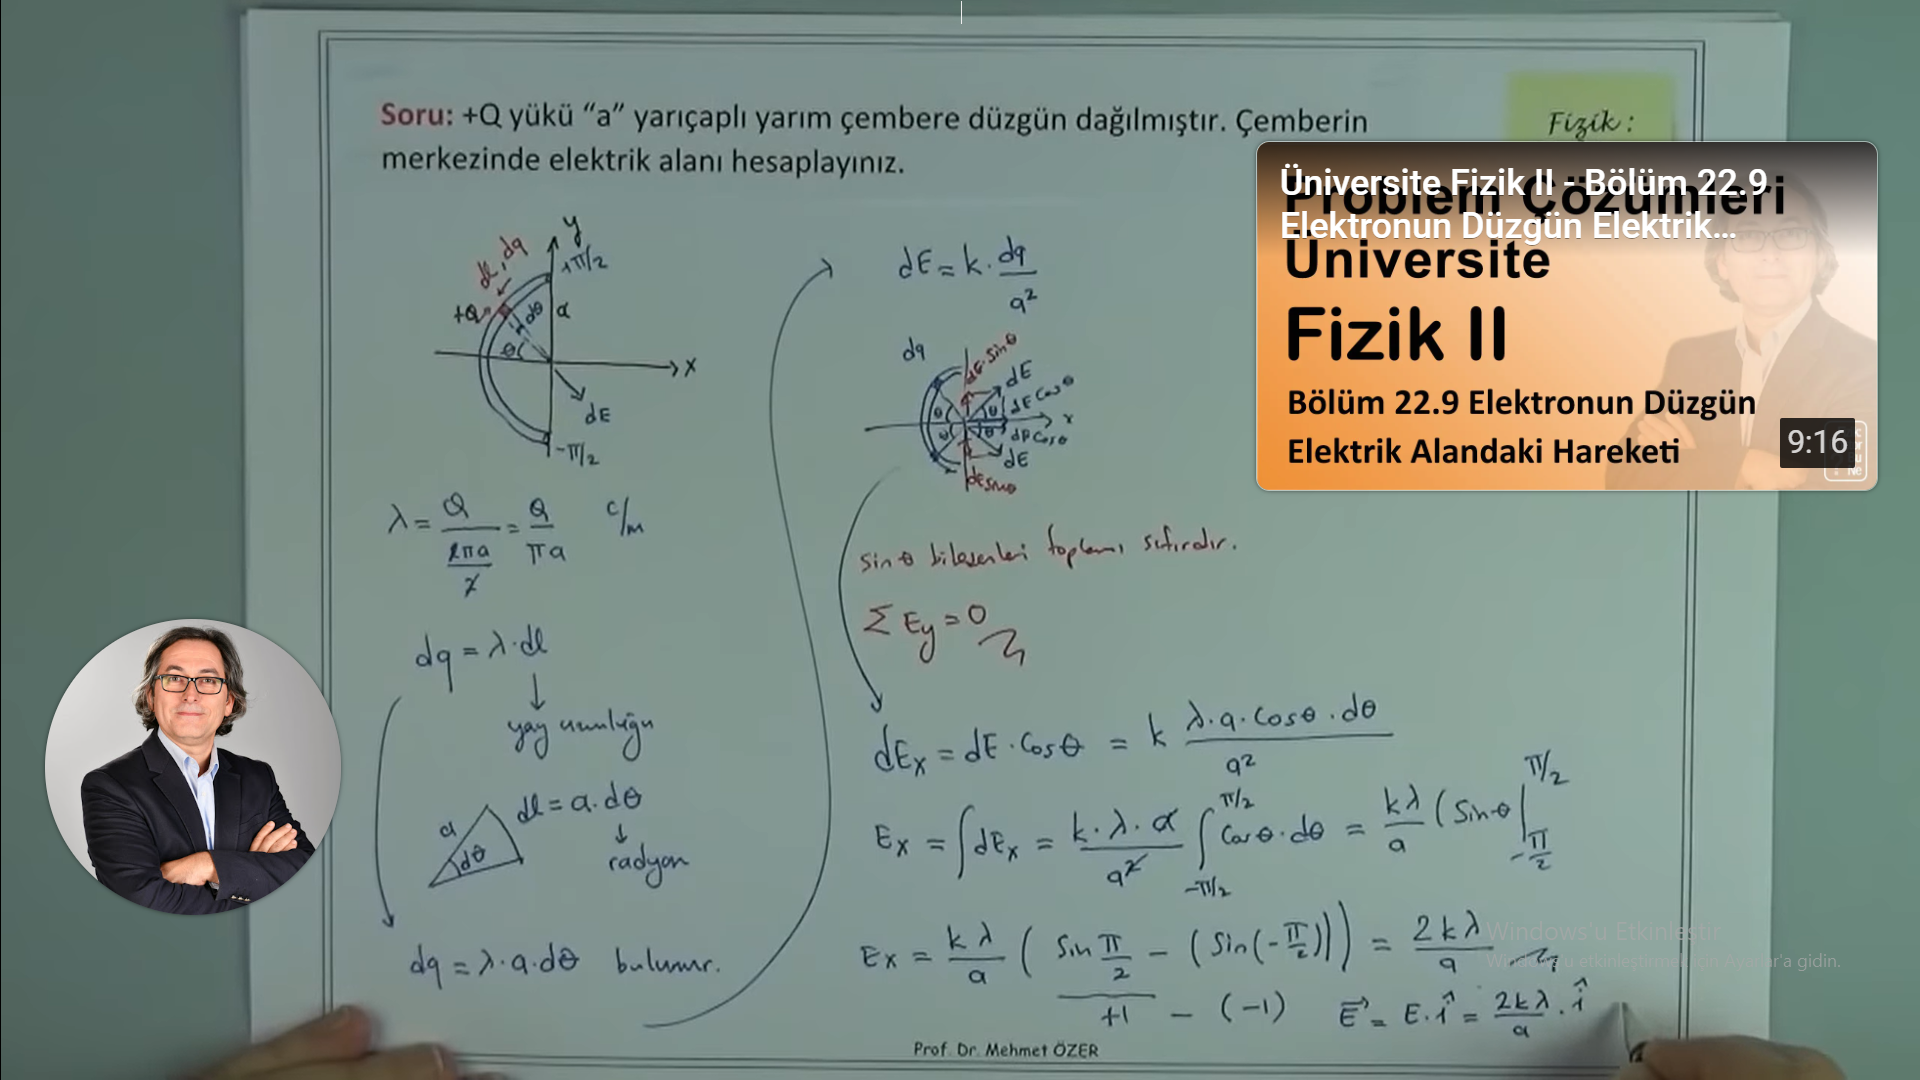 Soru: +Q yükü “a” yarıçaplı yarım çembere düzgün dağılmıştır. Çemberin
merkezinde elektrik alanı hesaplayınız.
Fizik :
Problem Çözümleri
Üniversite Fizik II - Bölüm 22.9
Elektronun Düzgün Elektrik...
Üniversite
Fizik II
Bölüm 22.9 Elektronun Düzgün
Elektrik Alandaki Hareketi
9:16
y
+π/2
dl, dq
+Q
dθ
a
θ
x
dE
-π/2
λ = Q / (2πa/2) = Q/πa C/m
dq = λ·dl
yay uzunluğu
a
dθ
dl = a.dθ
radyan
dq = λ·a·dθ bulunur.
dE = k· dq/a²
dq
dE·Sinθ
dE
dE Cosθ
θ
θ
x
θ
θ
dE Cosθ
dE
dE Sinθ
Sinθ bileşenleri toplamı sıfırdır.
Σ Ey = 0
dEx = dE·Cosθ = k λ·a·Cosθ·dθ / a²
Ex = ∫dEx = k·λ·a / a² ∫ -π/2 π/2 Cosθ·dθ = kλ/a (Sinθ | -π/2 π/2
Ex = kλ/a ( Sin π/2 - (Sin(-π/2))) = 2kλ/a
+1 - (-1)
E = E·î = 2kλ/a · î
Windows'u Etkinleştir
Windows'u etkinleştirmek için Ayarlar'a gidin.
Prof. Dr. Mehmet ÖZER